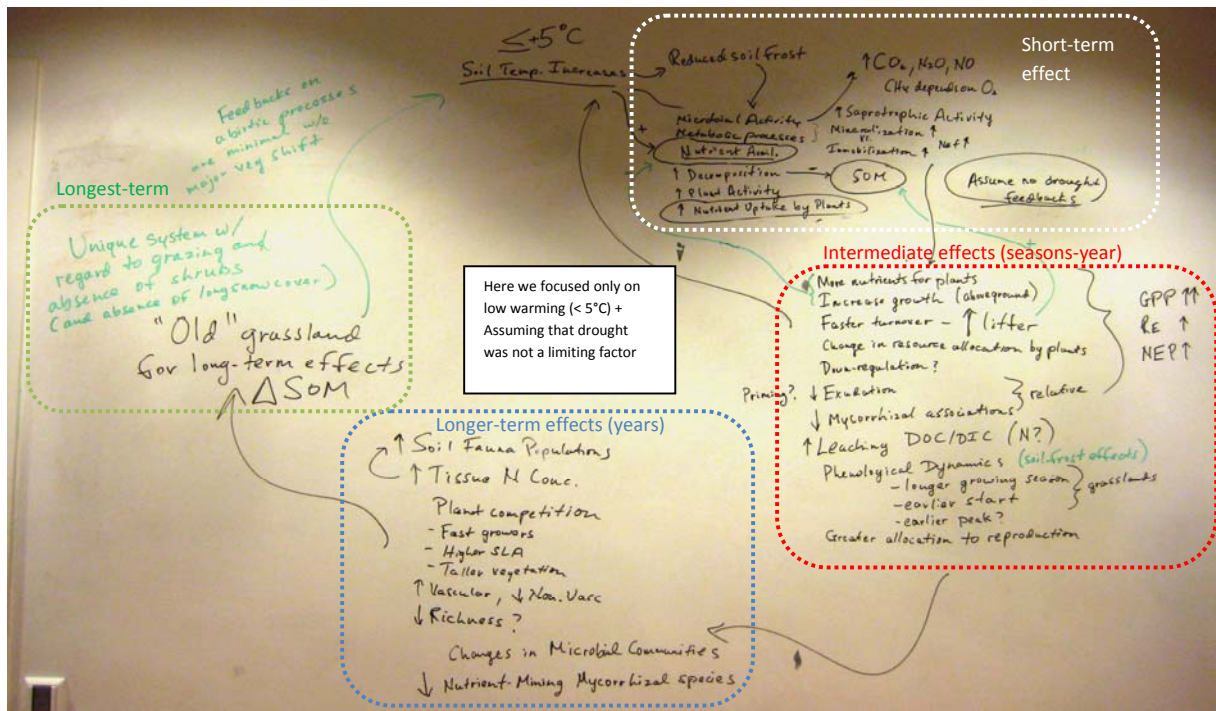 ≤+5°C
Soil Temp. Increases
Reduced soil frost
Short-term
effect
↑CO₂, N₂O, NO
CH₄ depends on O₂
Microbial Activity
Metabolic processes
+
Nutrient Avail.
↑ Saprotrophic Activity
Mineralization ↑
vs.
Immobilization ↑ Net ↑
↑ Decomposition
SOM
↑ Plant Activity
↑ Nutrient Uptake by Plants
Assume no drought
feedbacks
Feedbacks on
abiotic processes
are minimal w/o
major veg shift
Longest-term
Unique system w/
regard to grazing and
absence of shrubs
(and absence of long snow cover)
"Old" grassland
for long-term effects
Δ SOM
Here we focused only on
low warming (< 5°C) +
Assuming that drought
was not a limiting factor
Intermediate effects (seasons-year)
+
More nutrients for plants
Increase growth (aboveground)
Faster turnover - ↑ litter
Change in resource allocation by plants
Down-regulation?
Priming? ↓ Exudation
↓ Mycorrhizal associations } relative
GPP ↑↑
RE ↑
NEP ↑
↑ Leaching DOC/DIC (N?)
Phenological Dynamics (soil-frost effects)
- longer growing season
- earlier start } grasslands
- earlier peak?
Greater allocation to reproduction
Longer-term effects (years)
↑ Soil Fauna Populations
↑ Tissue N Conc.
Plant competition
- Fast growers
- Higher SLA
- Taller vegetation
↑ Vascular, ↓ Non. Vasc
↓ Richness?
Changes in Microbial Communities
↓ Nutrient-Mining Mycorrhizal species